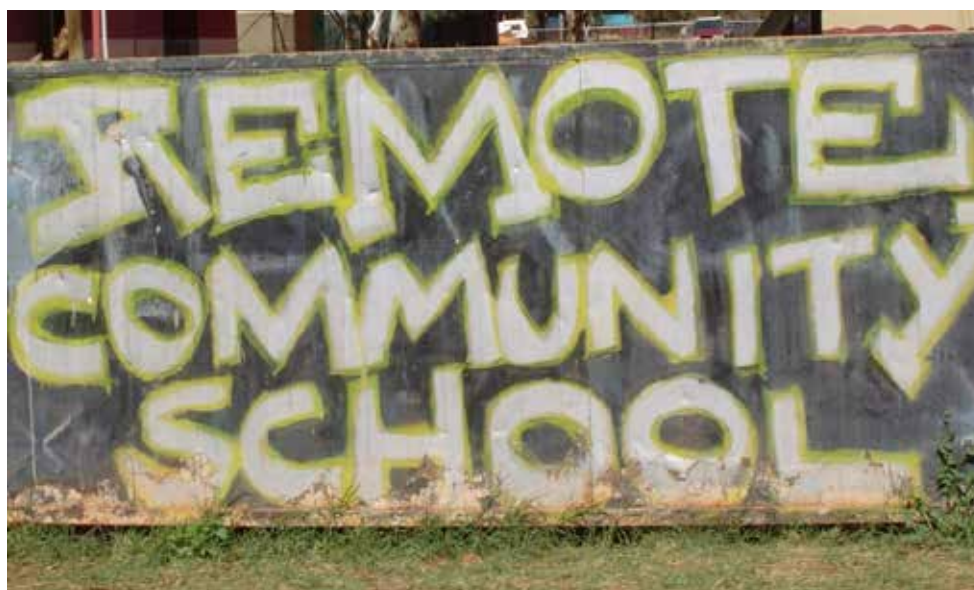 REMOTE
COMMUNITY
SCHOOL